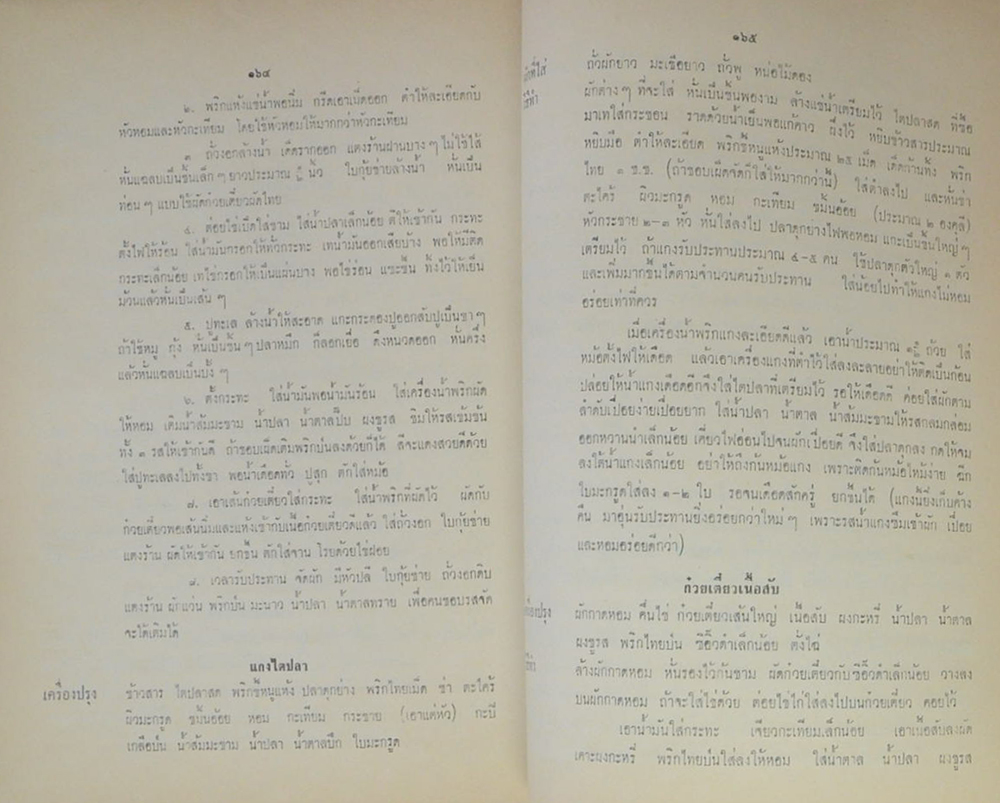 ๑๖๔
๒. พริกแห้งแช่น้ำพอนิ่ม กรีดเอาเม็ดออก ตำให้ละเอียดกับ
หัวหอมและหัวกะเทียม โดยใช้หัวหอมให้มากกว่าหัวกะเทียม
๓. ถั่วงอกล้างน้ำ เด็ดรากออก แตงร้านฝานบางๆ ไม่ใช้ไส้
หั่นแฉลบเป็นชิ้นเล็กๆ ยาวประมาณ นิ้ว ใบกุ้ยช่ายล้างน้ำ หั่นเป็น
ท่อนๆ แบบใช้ผัดก๋วยเตี๋ยวผัดไทย
๔. ต่อยไข่เป็ดใส่ชาม ใส่น้ำปลาเล็กน้อย ตีให้เข้ากัน กระทะ
ตั้งไฟให้ร้อน ใส่น้ำมันกรอกให้ทั่วกระทะ เทน้ำมันออกเสียบ้าง พอให้มีติด
กระทะเล็กน้อย เทไข่กรอกให้เป็นแผ่นบาง พอไข่ร่อน แซะขึ้น ทิ้งไว้ให้เย็น
ม้วนแล้วหั่นเป็นเส้นๆ
๕. ปูทะเล ล้างน้ำให้สะอาด แกะกระดองปูออกสับปูเป็นขาๆ
ถ้าใช้หมู กุ้ง หั่นเป็นชิ้นๆ ปลาหมึก ก็ลอกเยื่อ ดึงหนวดออก หั่นครึ่ง
แล้วหั่นแฉลบเป็นบั้งๆ
๖. ตั้งกระทะ ใส่น้ำมันพอน้ำมันร้อน ใส่เครื่องน้ำพริกผัด
ให้หอม เติมน้ำส้มมะขาม น้ำปลา น้ำตาลปีบ ผงชูรส ชิมให้รสเข้มข้น
ทั้ง ๓ รสให้เข้ากันดี ถ้าชอบเผ็ดเติมพริกป่นลงด้วยก็ได้ สีจะแดงสวยดีด้วย
ใส่ปูทะเลลงไปทั้งขา พอน้ำเดือดทั่ว ปูสุก ตักใส่หม้อ
๗. เอาเส้นก๋วยเตี๋ยวใส่กระทะ ใส่น้ำพริกที่ผัดไว้ ผัดกับ
ก๋วยเตี๋ยวพอเส้นนิ่มและแห้งเข้ากับเนื้อก๋วยเตี๋ยวดีแล้ว ใส่ถั่วงอก ใบกุ้ยช่าย
แตงร้าน ผัดให้เข้ากัน ยกขึ้น ตักใส่จาน โรยด้วยไข่ฝอย
๘. เวลารับประทาน จัดผัก มีหัวปลี ใบกุ้ยช่าย ถั่วงอกดิบ
แตงร้าน ผักแว่น พริกป่น มะนาว น้ำปลา น้ำตาลทราย เพื่อคนชอบรสจัด
จะได้เติมได้
แกงไตปลา
เครื่องปรุง ข้าวสาร ไตปลาสด พริกขี้หนูแห้ง ปลาดุกย่าง พริกไทยเม็ด ข่า ตะไคร้
ผิวมะกรูด ขมิ้นอ้อย หอม กะเทียม กระชาย (เอาแต่หัว) กะปิ
เกลือป่น น้ำส้มมะขาม น้ำปลา น้ำตาลปีก ใบมะกรูด
๑๖๕
ผักที่ใส่ ถั่วฝักยาว มะเขือยาว ถั่วพู หน่อไม้ดอง
วิธีทำ ผักต่างๆ ที่จะใส่ หั่นเป็นชิ้นพองาม ล้างแช่น้ำเตรียมไว้ ไตปลาสด ที่ซื้อ
มาเทใส่กระชอน ราดด้วยน้ำเย็นพอแก้คาว ผึ่งไว้ หยิบข้าวสารประมาณ
หยิบมือ ตำให้ละเอียด พริกขี้หนูแห้งประมาณ ๒๕ เม็ด เด็ดก้านทิ้ง พริก
ไทย ๑ ช.ช. (ถ้าชอบเผ็ดจัดก็ใส่ให้มากกว่านี้) ใส่ตำลงไป และหั่นข่า
ตะไคร้ ผิวมะกรูด หอม กะเทียม ขมิ้นอ้อย (ประมาณ ๒ องคุลี)
หัวกระชาย ๒-๓ หัว หั่นใส่ลงไป ปลาดุกย่างไฟพอหอม แกะเป็นชิ้นใหญ่ๆ
เตรียมไว้ ถ้าแกงรับประทานประมาณ ๔-๕ คน ใช้ปลาดุกตัวใหญ่ ๑ ตัว
และเพิ่มมากขึ้นได้ตามจำนวนคนรับประทาน ใส่น้อยไปทำให้แกงไม่หอม
อร่อยเท่าที่ควร
เมื่อเครื่องน้ำพริกแกงละเอียดดีแล้ว เอาน้ำประมาณ ถ้วย ใส่
หม้อตั้งไฟให้เดือด แล้วเอาเครื่องแกงที่ตำไว้ใส่ลงละลายอย่าให้ติดเป็นก้อน
ปล่อยให้น้ำแกงเดือดอีกจึงใส่ไตปลาที่เตรียมไว้ รอให้เดือดดี ค่อยใส่ผักตาม
ลำดับเปื่อยง่ายเปื่อยยาก ใส่น้ำปลา น้ำตาล น้ำส้มมะขามให้รสกลมกล่อม
ออกหวานนำเล็กน้อย เคี่ยวไฟอ่อนไปจนผักเปื่อยดี จึงใส่ปลาดุกลง กดให้จม
ลงใต้น้ำแกงเล็กน้อย อย่าให้ถึงก้นหม้อแกง เพราะติดก้นหม้อไหม้ง่าย ฉีก
ใบมะกรูดใส่ลง ๑-๒ ใบ รอจนเดือดสักครู่ ยกขึ้นได้ (แกงนี้ยิ่งเก็บค้าง
คืน มาอุ่นรับประทานยิ่งอร่อยกว่าใหม่ๆ เพราะรสน้ำแกงซึมเข้าผัก เปื่อย
และหอมอร่อยดีกว่า)
ก๋วยเตี๋ยวเนื้อสับ
เครื่องปรุง ผักกาดหอม คึ่นไช่ ก๋วยเตี๋ยวเส้นใหญ่ เนื้อสับ ผงกะหรี่ น้ำปลา น้ำตาล
ผงชูรส พริกไทยป่น ซีอิ๊วดำเล็กน้อย ตั้งไฉ่
วิธีทำ ล้างผักกาดหอม หั่นรองไว้ก้นชาม ผัดก๋วยเตี๋ยวกับซีอิ๊วดำเล็กน้อย วางลง
บนผักกาดหอม ถ้าจะใส่ไข่ด้วย ต่อยไข่ไก่ใส่ลงไปบนก๋วยเตี๋ยว คอยไว้
เอาน้ำมันใส่กระทะ เจียวกะเทียมเล็กน้อย เอาเนื้อสับลงผัด
เคาะผงกะหรี่ พริกไทยป่นใส่ลงให้หอม ใส่น้ำตาล น้ำปลา ผงชูรส